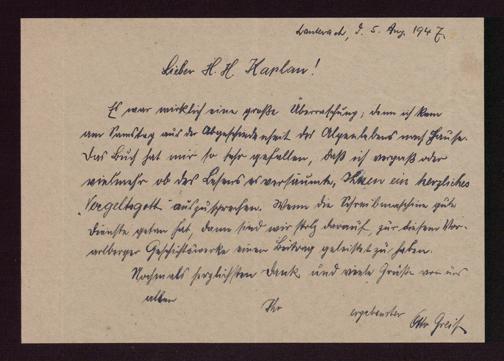 Lauterach, d. 5. Aug. 1947.
Lieber H. H. Kaplan!
Es war wirklich eine große Überraschung; denn ich kam
am Samstag aus der Abgeschiedenheit des Alpenlebens nach Hause.
Das Buch hat mir so sehr gefallen, daß ich vergaß oder
vielmehr ob des Lesens es versäumte, Ihnen ein herzliches
„Vergeltsgott" auszusprechen. Wenn die Schreibmaschine gute
Dienste getan hat, dann sind wir stolz darauf, zu diesem Vor-
arlberger Geschichtswerke einen Beitrag geleistet zu haben.
Nochmals herzlichsten Dank und viele Grüße von uns
allen
Ihr ergebenster
Otto Greis